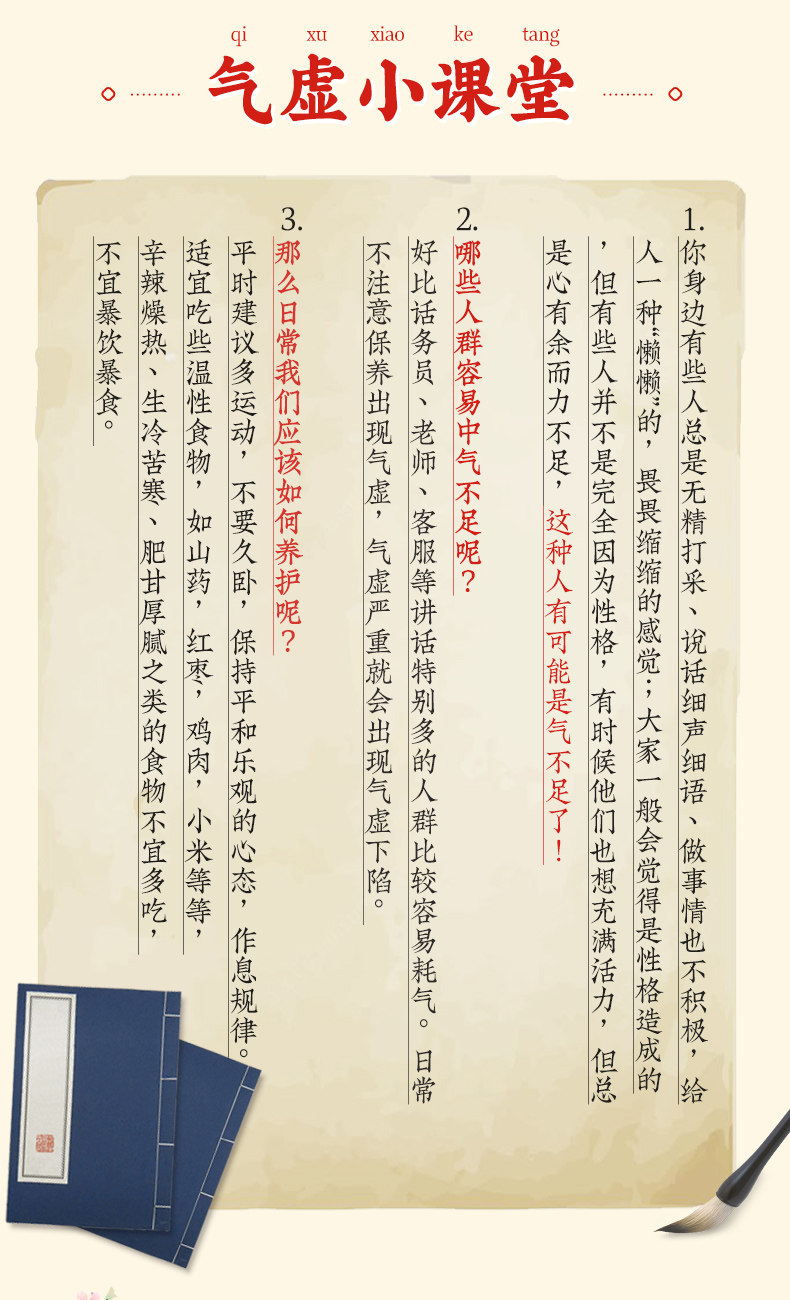 qi xu xiao ke tang
气虚小课堂
1.
你身边有些人总是无精打采、说话细声细语、做事情也不积极，给
人一种“懒懒”的，畏畏缩缩的感觉；大家一般会觉得是性格造成的
，但有些人并不是完全因为性格，有时候他们也想充满活力，但总
是心有余而力不足，这种人有可能是气不足了！
2.
哪些人群容易中气不足呢？
好比话务员、老师、客服等讲话特别多的人群比较容易耗气。日常
不注意保养出现气虚，气虚严重就会出现气虚下陷。
3.
那么日常我们应该如何养护呢？
平时建议多运动，不要久卧，保持平和乐观的心态，作息规律。
适宜吃些温性食物，如山药，红枣，鸡肉，小米等等，
辛辣燥热、生冷苦寒、肥甘厚腻之类的食物不宜多吃，
不宜暴饮暴食。